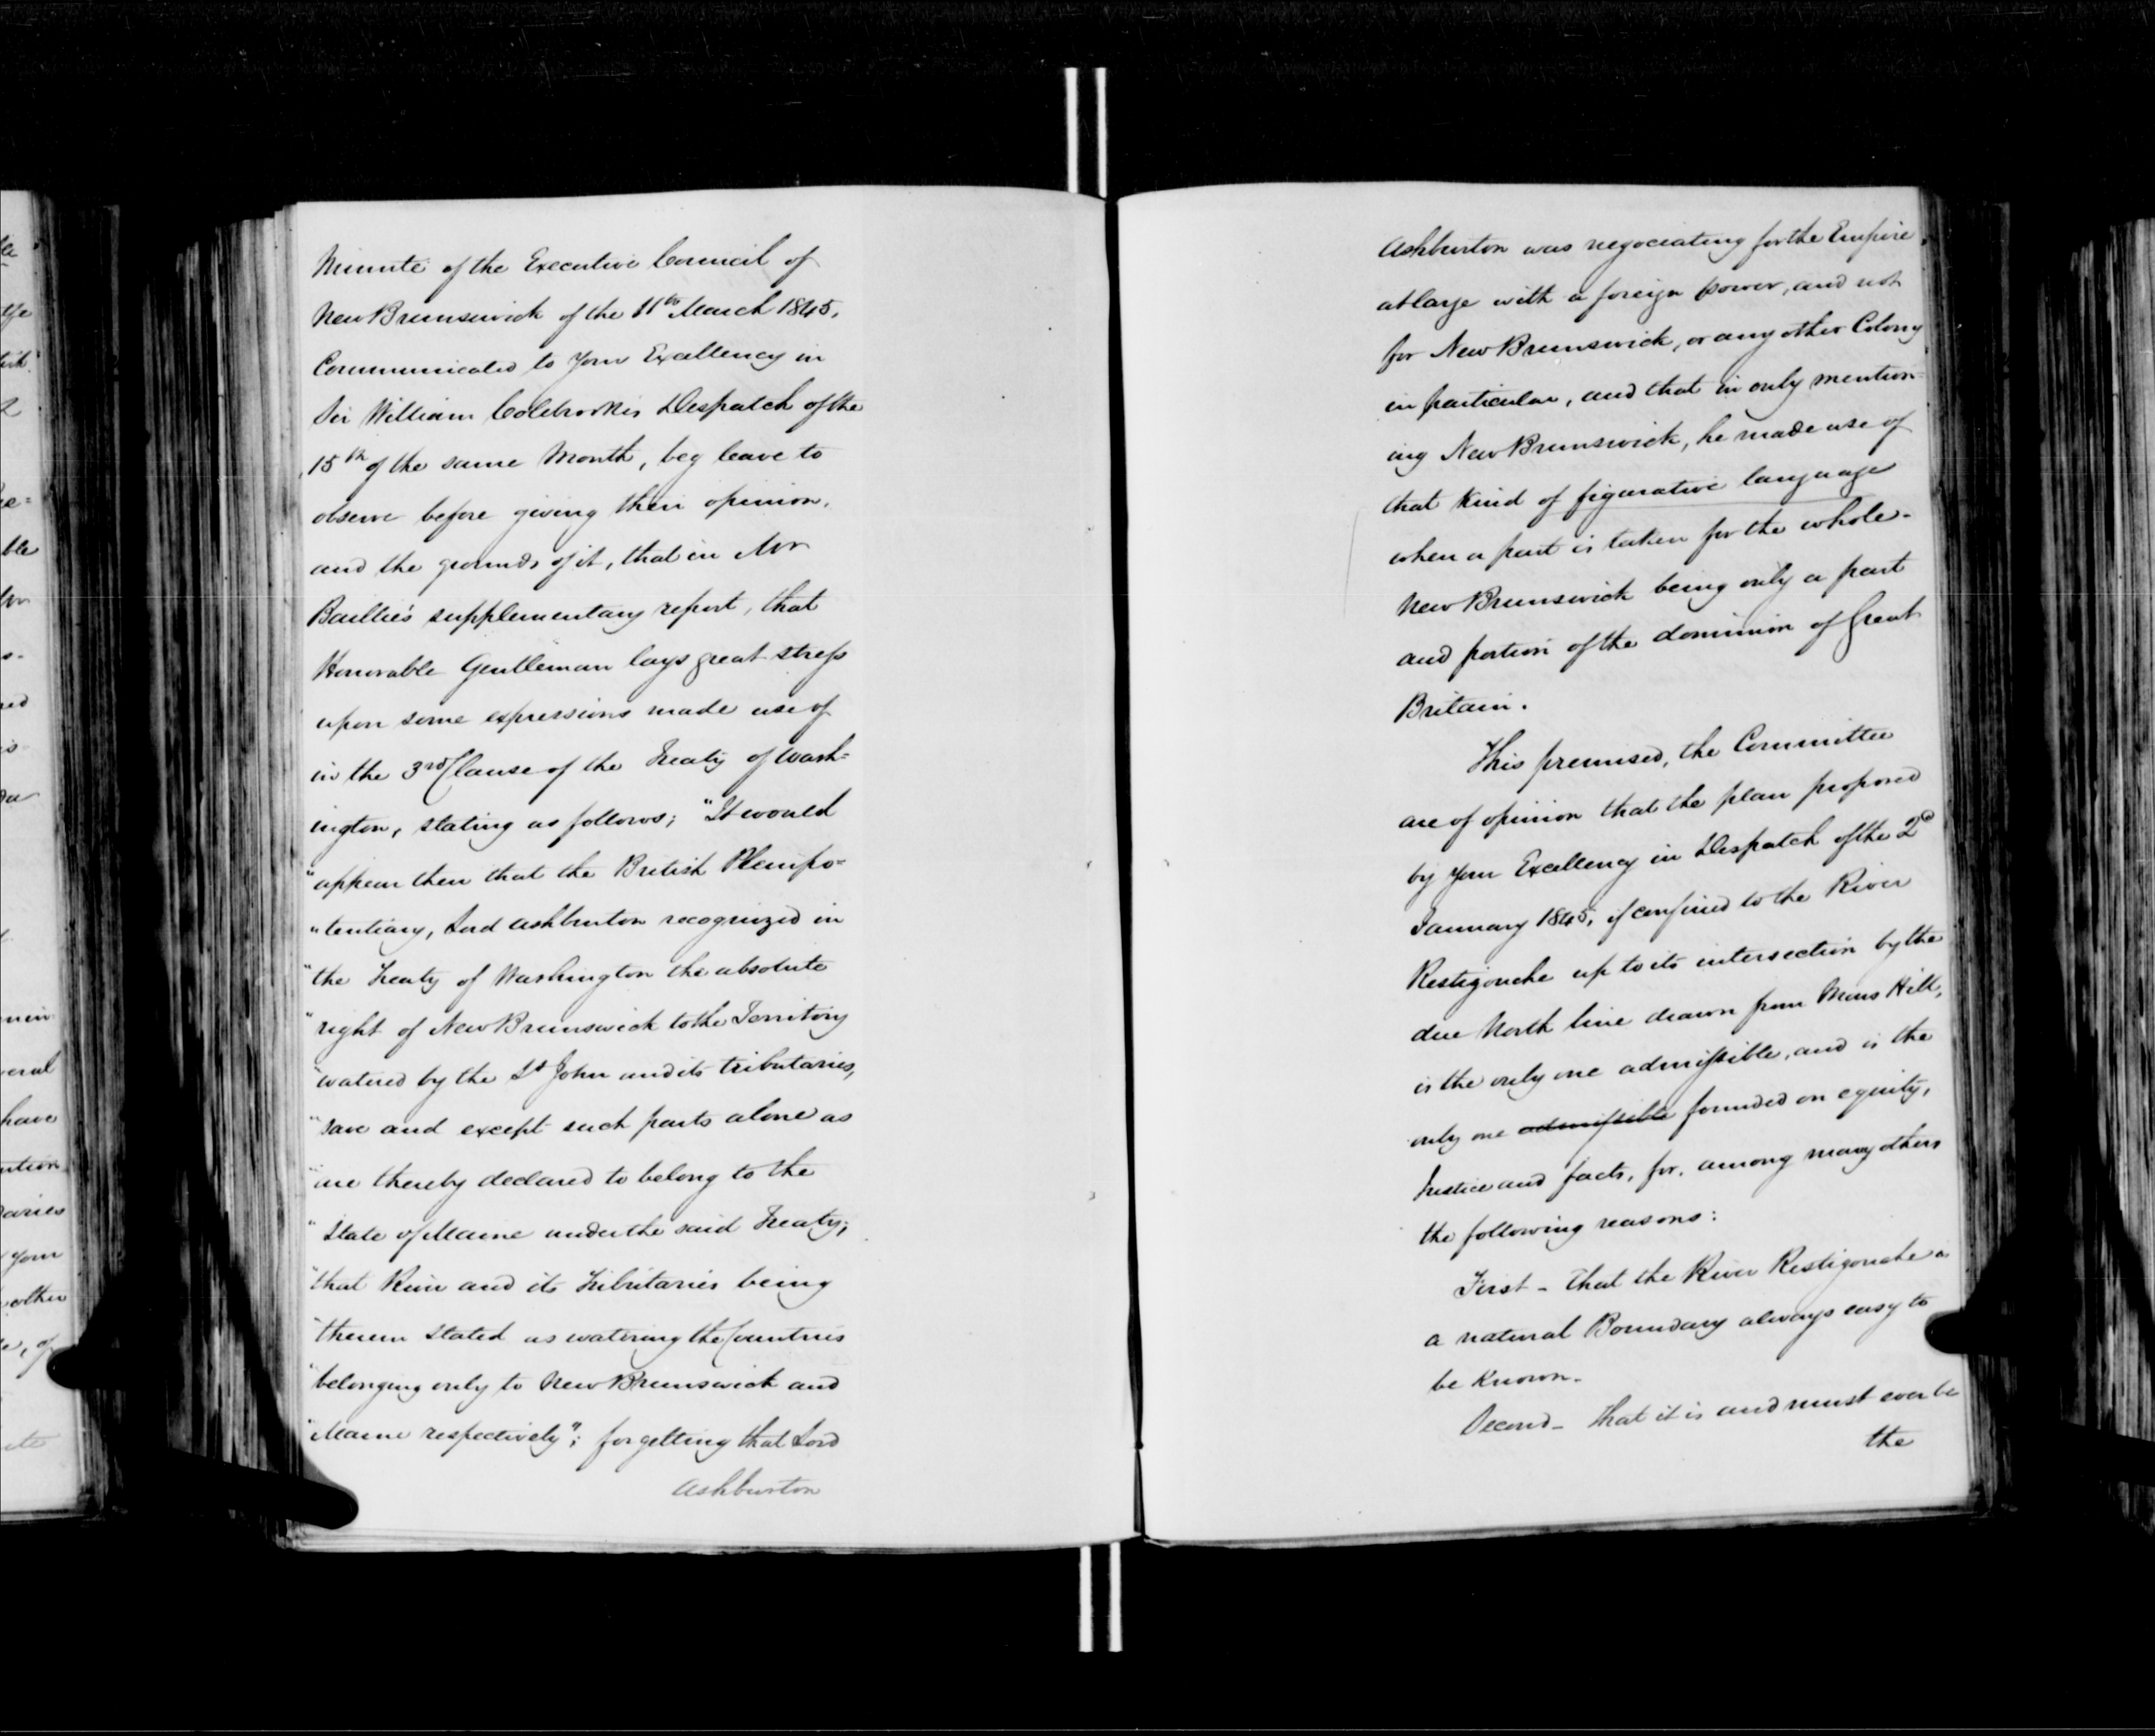 Minute of the Executive Council of
New Brunswick of the 11th March 1845,
Communicated to Your Excellency in
Sir William Colebrooke's Despatch of the
15th of the same Month, beg leave to
observe before giving their opinion,
and the grounds of it, that in Mr
Baillie's supplementary report, that
Honorable Gentleman lays great stress
upon some expressions made use of
in the 3rd Clause of the Treaty of Wash=
ington, stating as follows; "It would
"appear then that the British Plenipo=
"tentiary, Lord Ashburton recognized in
"the Treaty of Washington the absolute
"right of New Brunswick to the Territory
"watered by the St John and its tributaries,
"save and except such parts alone as
"are thereby declared to belong to the
"State of Maine under the said Treaty;
"that River and its Tributaries being
"therein stated as watering the Countries
"belonging only to New Brunswick and
"Maine respectively"; forgetting that Lord
Ashburton
Ashburton was negociating for the Empire
at large with a foreign power, and not
for New Brunswick, or any other Colony
in particular, and that in only mention=
ing New Brunswick, he made use of
that kind of figurative language
when a part is taken for the whole-
New Brunswick being only a part
and portion of the dominion of Great
Britain.
This premised, the Committee
are of opinion that the plan proposed
by Your Excellency in Despatch of the 2d
January 1845, if confined to the River
Restigouche up to its intersection by the
due North line drawn from Mars Hill,
is the only one admissible, and is the
only one admissible founded on equity,
Justice and facts, for, among many others
the following reasons:
First - That the River Restigouche is
a natural Boundary always easy to
be known.
Second - That it is and must ever be
the